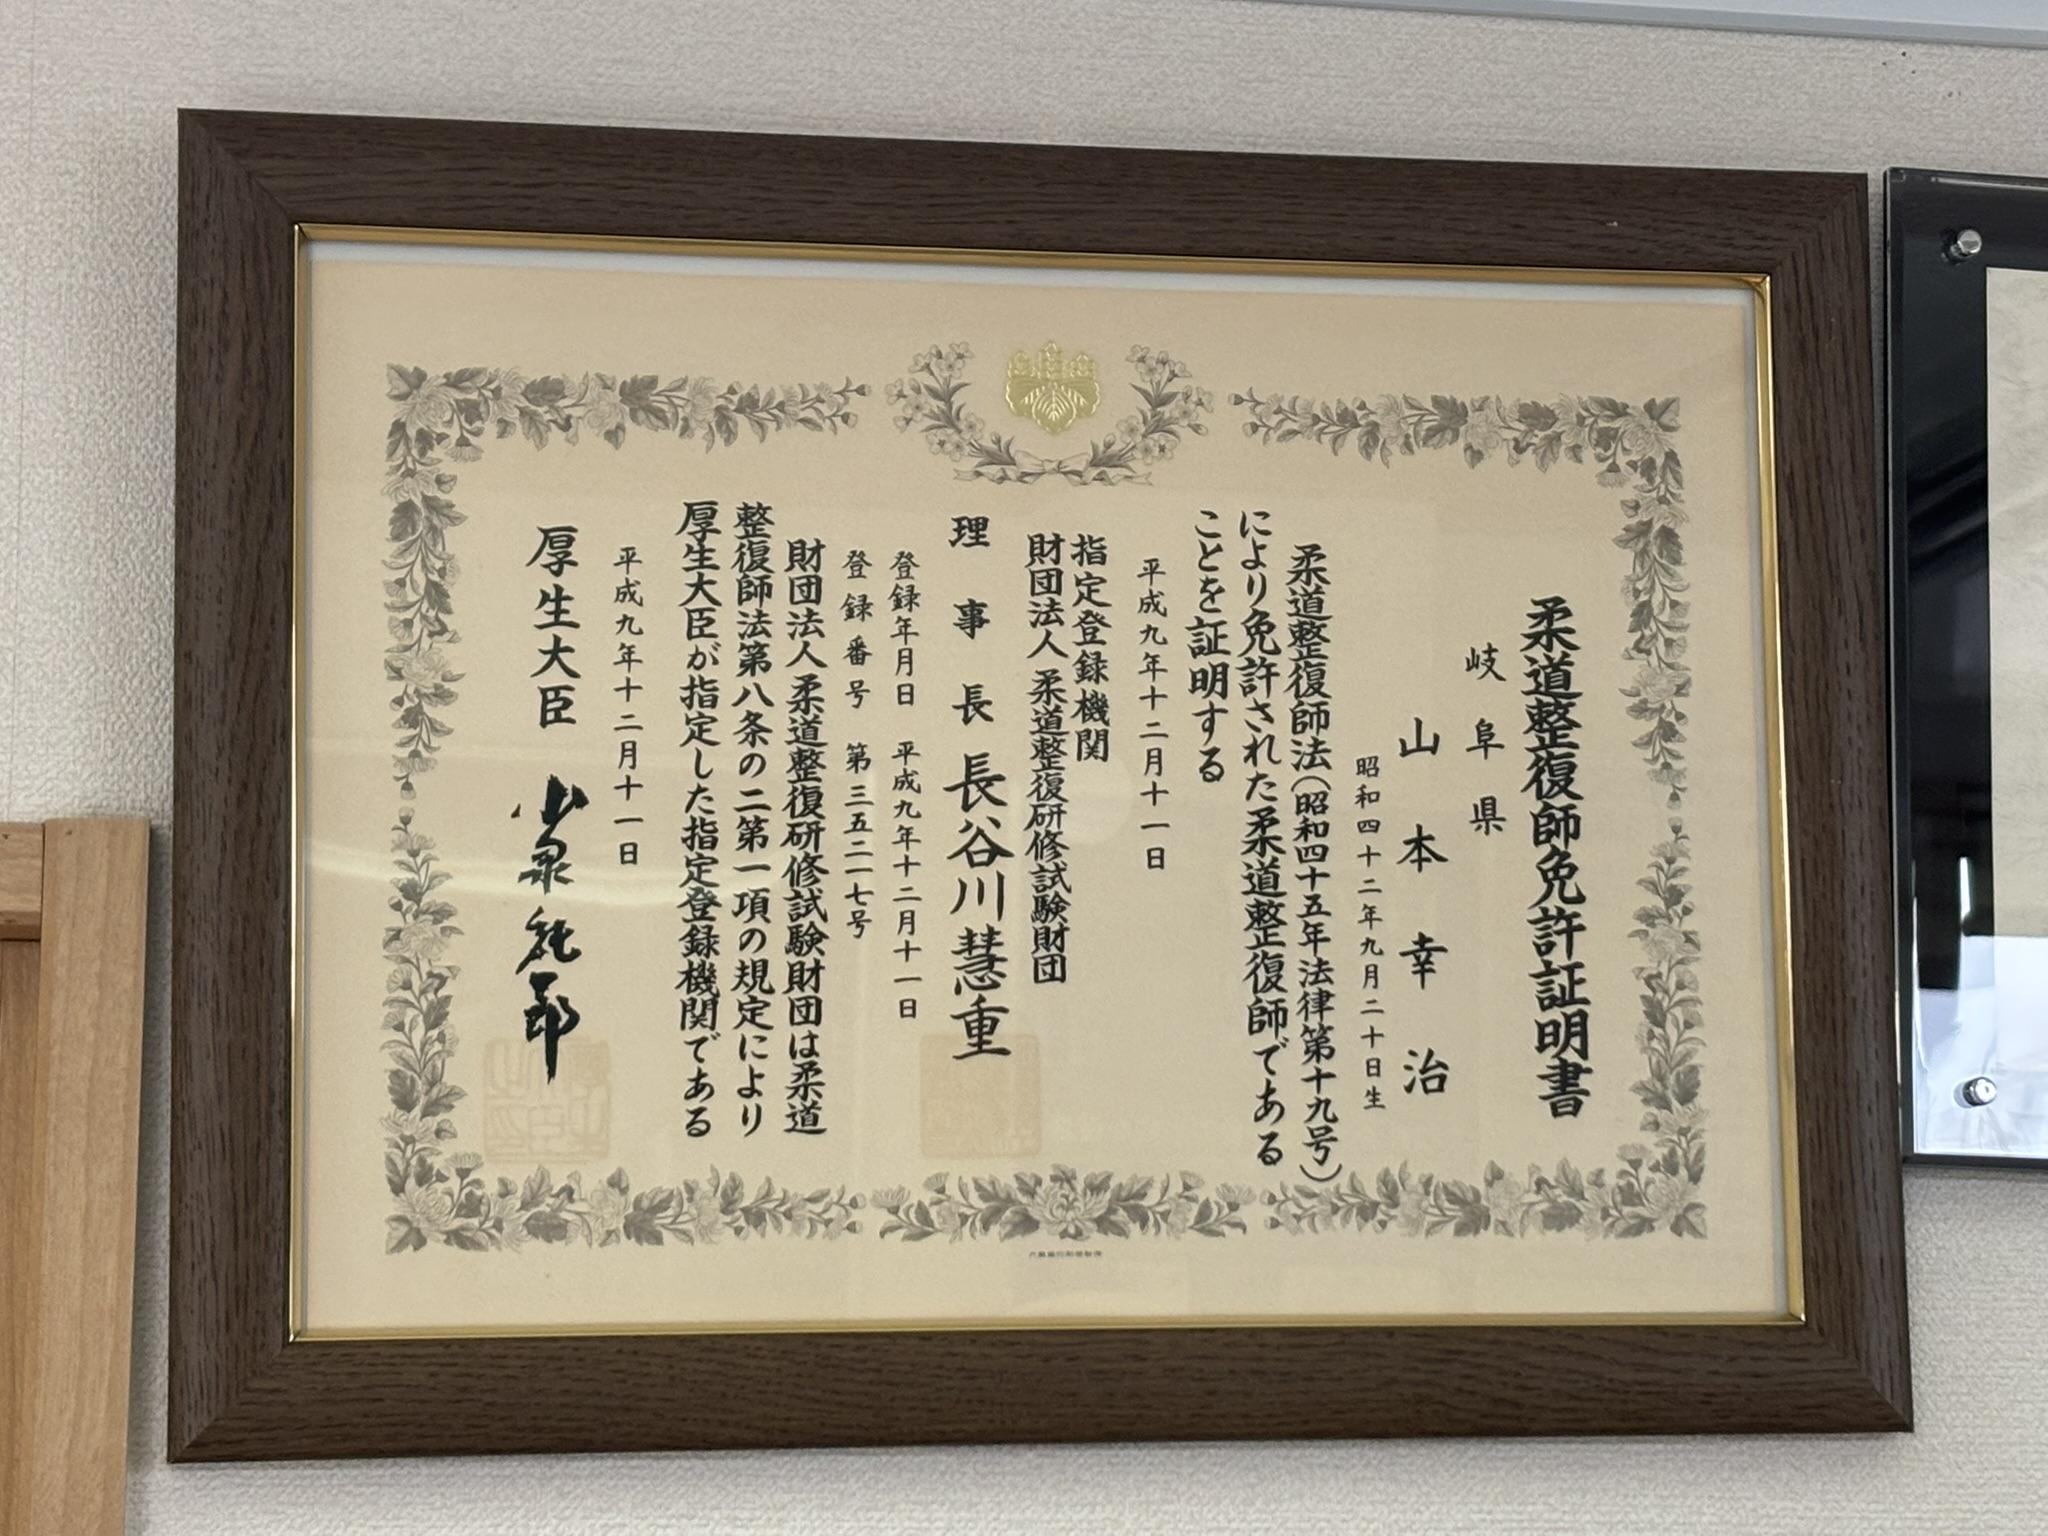 柔道整復師免許証明書
岐阜県
山本幸治
昭和四十二年九月二十日生
柔道整復師法(昭和四十五年法律第十九号)
により免許された柔道整復師である
ことを証明する
平成九年十二月十一日
指定登録機関
財団法人 柔道整復研修試験財団
理事長 長谷川慧重
登録年月日 平成九年十二月十一日
登録番号 第三五二一七号
財団法人柔道整復研修試験財団は柔道
整復師法第八条の二第一項の規定により
厚生大臣が指定した指定登録機関である
平成九年十二月十一日
厚生大臣 小泉純一郎